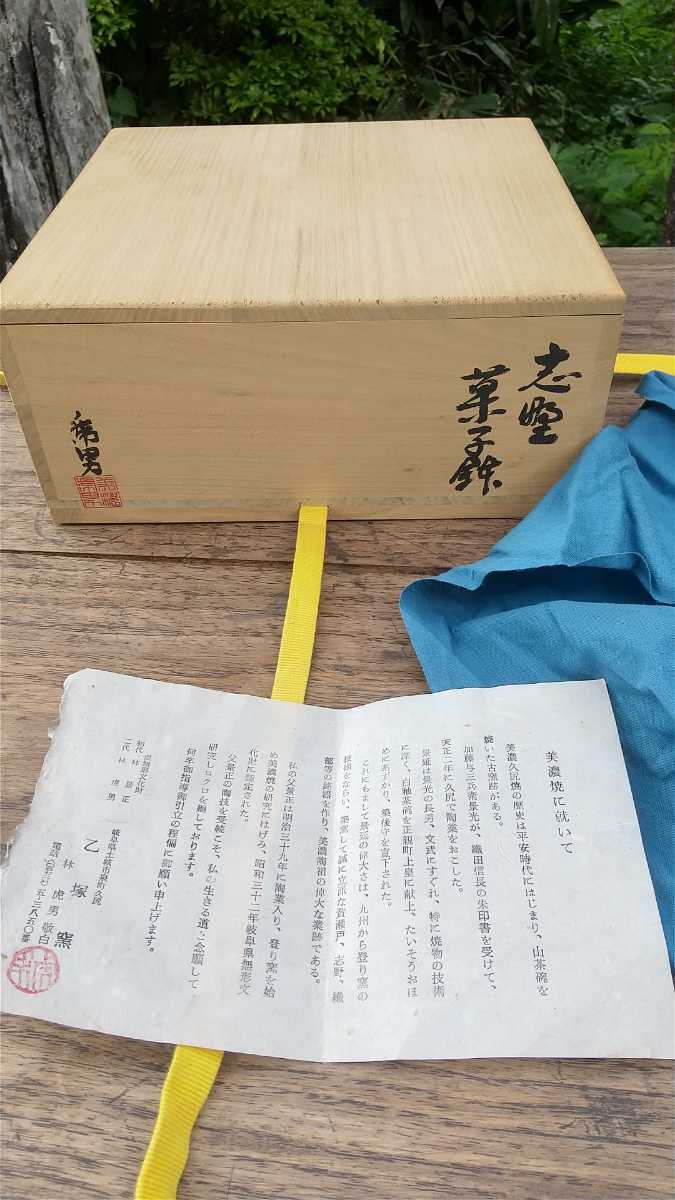 志野
菓子鉢
虎男
美濃焼に就いて
美濃久尻焼の歴史は平安時代にはじまり、山茶碗を
焼いた古窯跡がある。
加藤与三兵衛景光が、織田信長の朱印書を受けて、
天正二年に久尻で陶業をおこした。
景延は景光の長男、文武にすぐれ、特に焼物の技術
に深く、白釉茶碗を正親町上皇に献上、たいそうおほ
めにあずかり、築後守を宣下された。
これにもまして景延の偉大さは、九州から登り窯の
技術をならい、築窯して誠に立派な黄瀬戸、志野、織
部等の銘器を作り、美濃陶祖の偉大な業跡である。
私の父景正は明治三十九年に陶業入り、登り窯を始
め美濃焼の研究にはげみ、昭和三十二年岐阜県無形文
化財に認定された。
父景正の陶技を受続こそ、私の生きる道と一念願して
研究しロクロを廻しております。
何卒御指導御引立の程偏に御願い申上げます。
岐阜県土岐市泉町久尻
乙塚窯
林虎男敬白
電話(〇五七二)五-三八五〇番
県無形文化財
初代 林景正
二代 林虎男